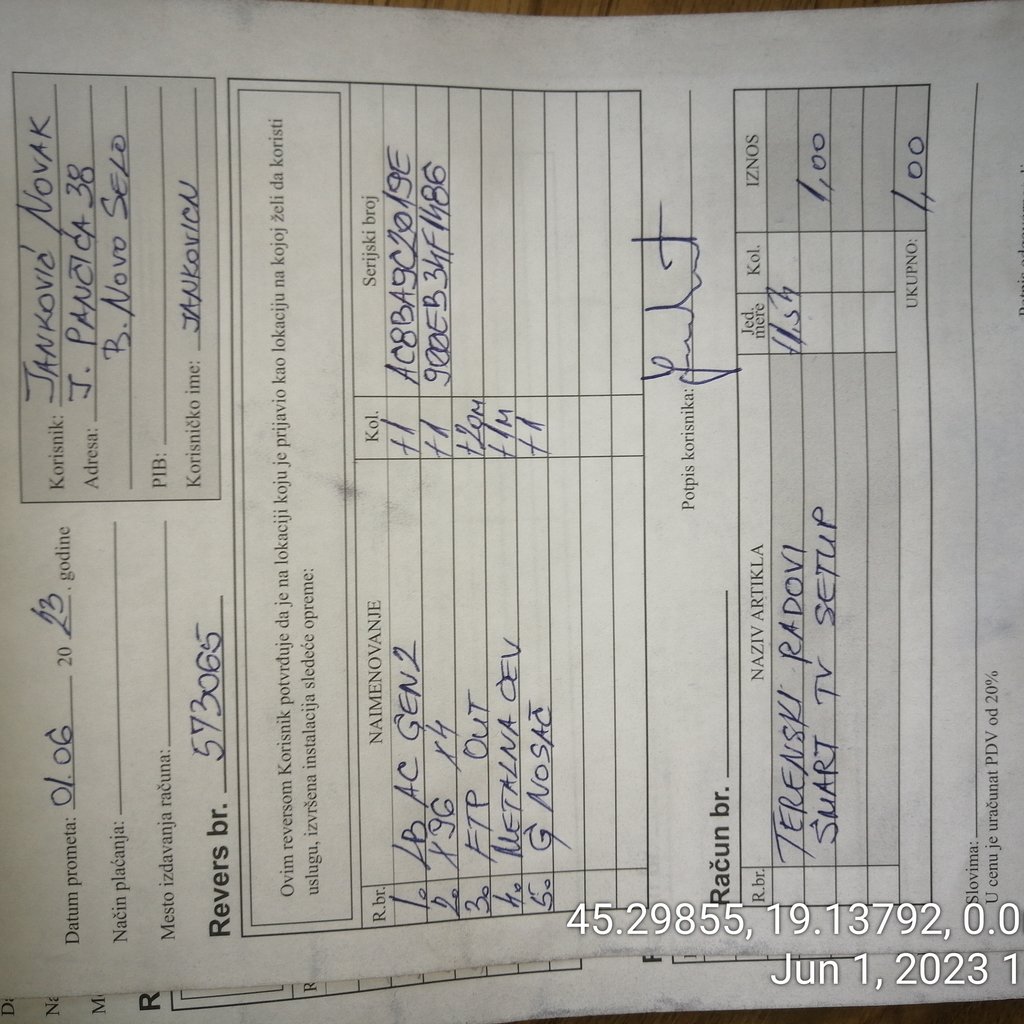 Datum prometa: 01.06 20 23. godine
Način plaćanja:
Mesto izdavanja računa:
Korisnik: JANKOVIĆ NOVAK
Adresa: J. PANČIĆA 38
B. NOVO SELO
PIB:
Korisničko ime: JANKOVICN
Revers br. 573065
Ovim reversom Korisnik potvrđuje da je na lokaciji koju je prijavio kao lokaciju na kojoj želi da koristi
uslugu, izvršena instalacija sledeće opreme:
R.br. NAIMENOVANJE Kol. Serijski broj
1. LB AC GEN2 +1 AC8BA9C2019E
2. X96 X4 +1 900EB34F1486
3. FTP OUT +20M
4. METALNA CEV +1M
5. G NOSAČ +1
Potpis korisnika:
Račun br.
R.br. NAZIV ARTIKLA Jed. mere Kol. IZNOS
TERENSKI RADOVI
SMART TV SETUP 1,00
UKUPNO: 1,00
Slovima:
U cenu je uračunat PDV od 20%
45.29855, 19.13792, 0.0
Jun 1, 2023 1